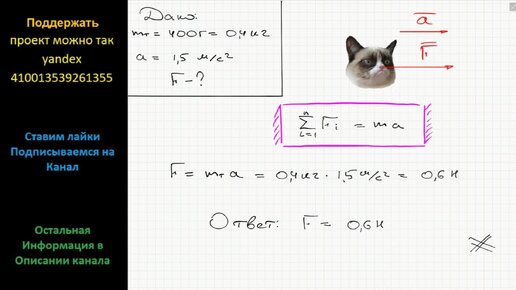 Поддержать
проект можно так
yandex
410013539261355
Ставим лайки
Подписываемся на
Канал
Остальная
Информация в
Описании канала
Дано:
mт = 400г = 0,4 кг
a = 1,5 м/с²
F - ?
a
F
n
∑ Fi = ma
i=1
F = mт a = 0,4 кг · 1,5 м/с² = 0,6 Н
Ответ: F = 0,6 Н